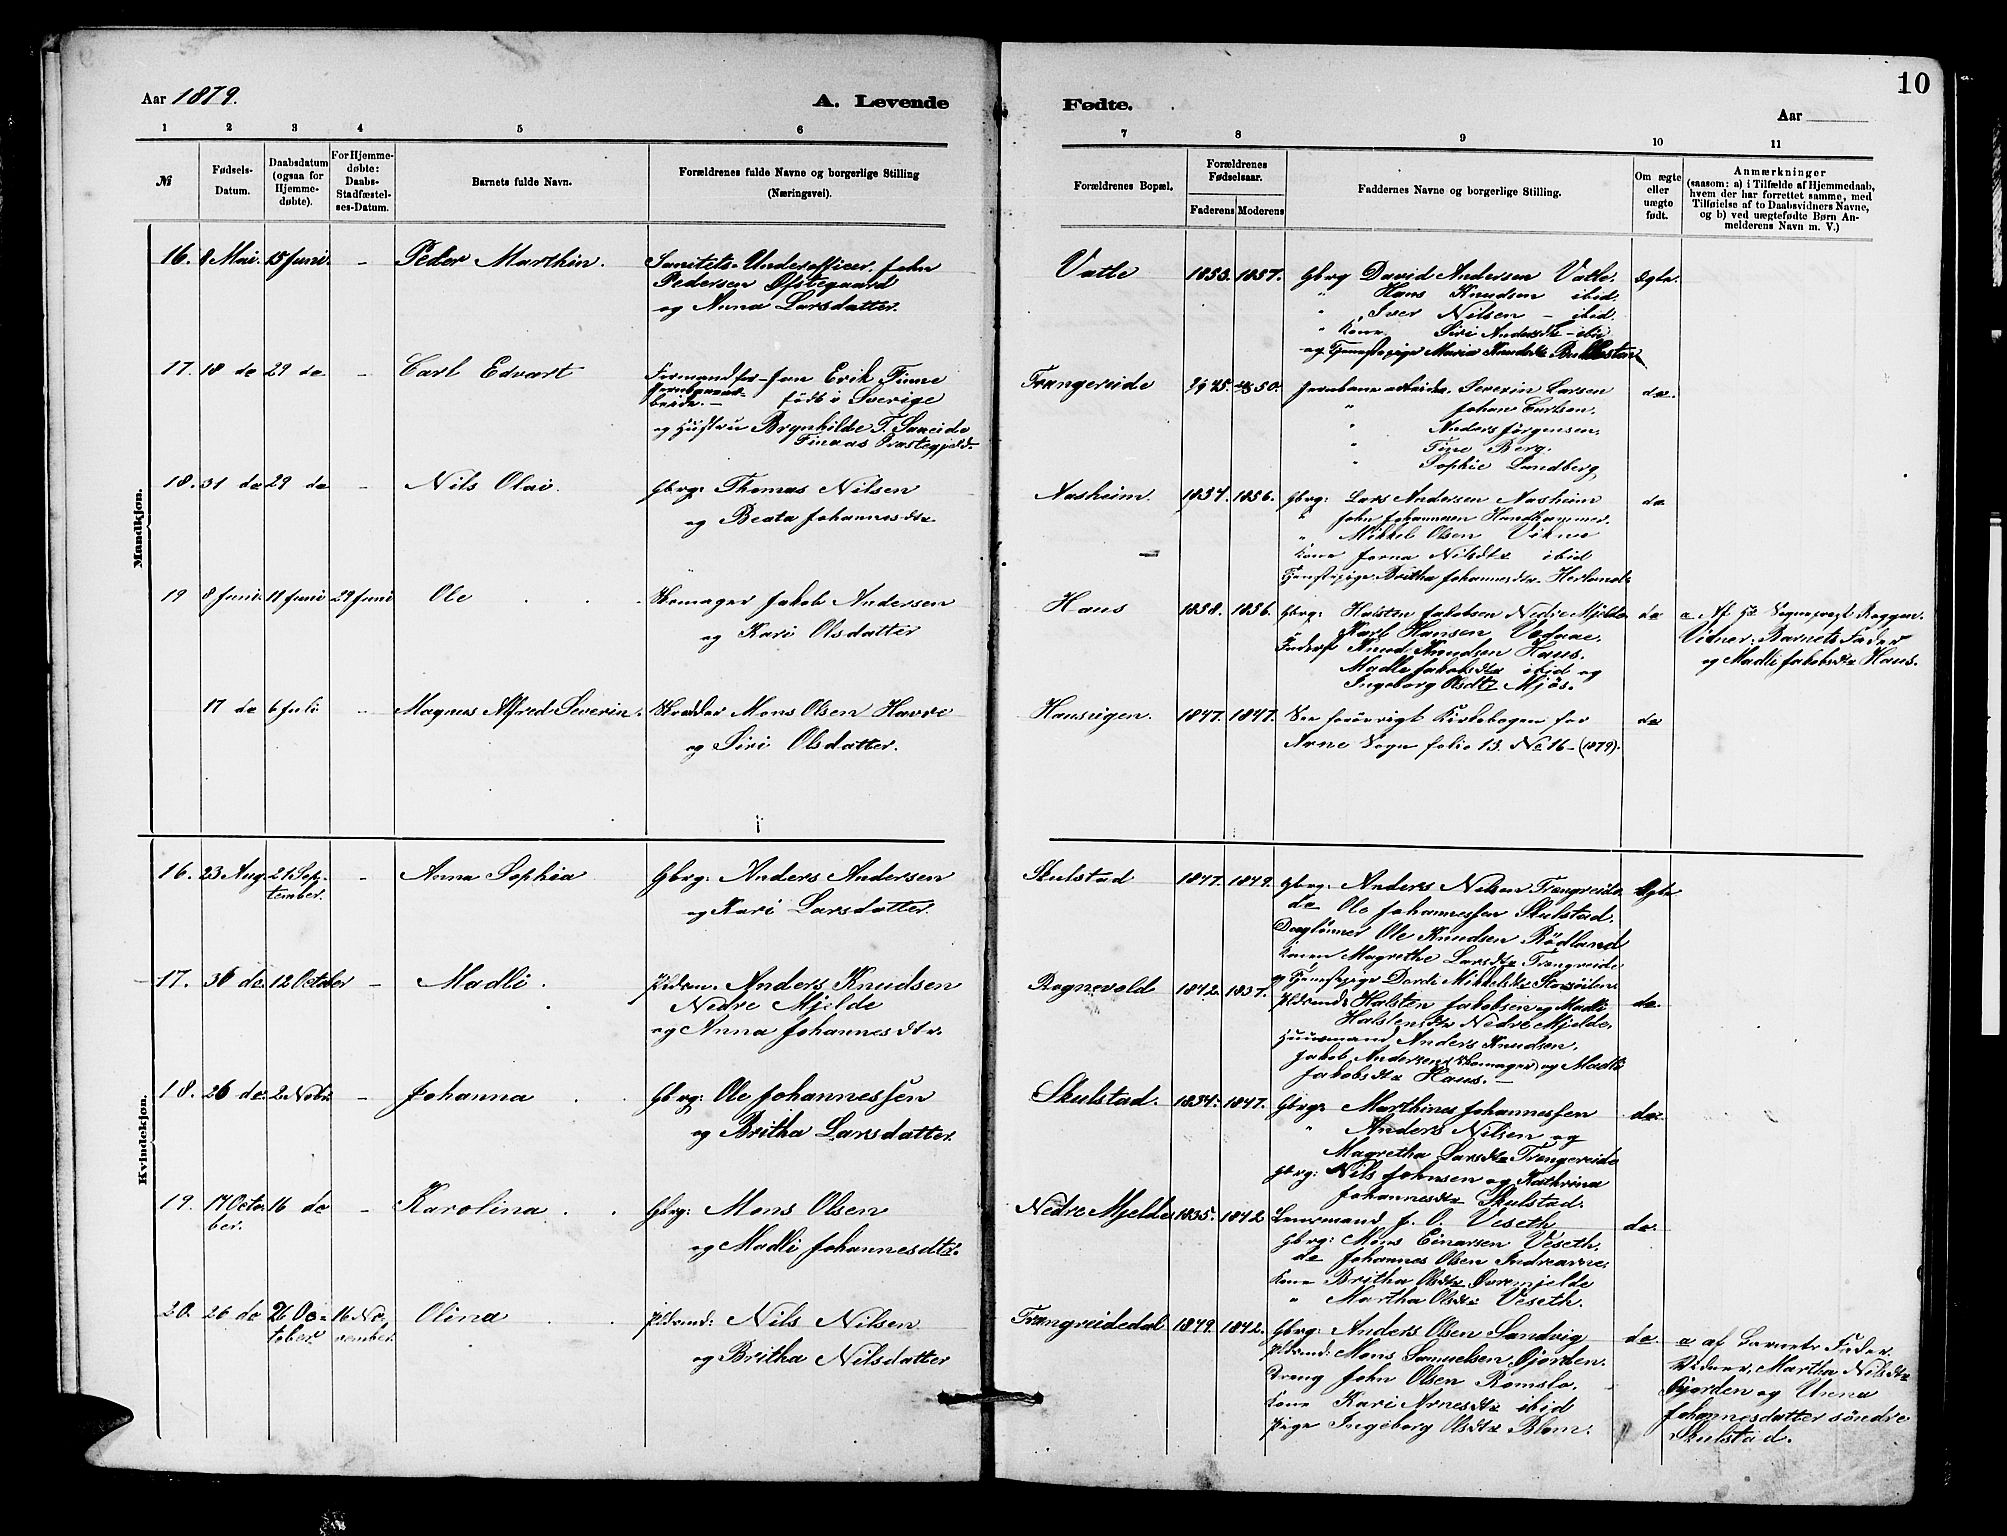 10
Aar 1879.
A. Levende
Fødte.
Aar
1 2 3 4 5 6 7 8 9 10 11
№
Fødsels-
Datum.
Daabsdatum
(ogsaa for
Hjemme-
døbte).
For Hjemme-
døbte:
Daabs-
Stadfæstel-
ses-Datum.
Barnets fulde Navn.
Forældrenes fulde Navne og borgerlige Stilling
(Næringsvei).
Forældrenes Bopæl.
Forældrenes
Fødselsaar.
Faderens Moderens
Faddernes Navne og borgerlige Stilling.
Om ægte
eller
uægte
født.
Anmærkninger
(saasom: a) i Tilfælde af Hjemmedaab,
hvem der har forrettet samme, med
Tilføielse af to Daabsvidners Navne,
og b) ved uægtefødte Børn An-
melderens Navn m. V.)
Mandkjøn.
16. 8 Mai. 15 Juni. - Peder Marthin.
Sanitets-Underofficer John
Pedersen Østegaard
og Anna Larsdatter.
Vatle 1853. 1857.
Gbrg David Andersen Vatle.
" Hans Knudsen ibid.
" Iver Nilsen - ibid.
" Kone Siri Andersdtr - ibid
og Tjenestepige Maria Knudsdtr
Ægte.
17. 18 do 29 do - Carl Edvart
Jan Erik Finne
født i Sverige
og Hustru Brynhilde T. Saaeide
Finaas Præstegjeld.
Trængereide 50.
Jernbanearbeider Severin Larsen
" Johan Carlsen.
" Anders Jørgensen.
" Tine Berg.
" Sophie Lundberg,
do.
18. 31 do 29 do - Nils Olai.
Gbrg: Thomas Nilsen
og Beata Johannesdtr
Aasheim. 1834. 1856.
Gbrg: Lars Andersen Aasheim
" John Johannesen Haudhammer.
" Mikkel Olsen Vikne
Kone Jorna Nilsdtr ibid
Tjenestepige Britha Johannesdtr Herland.
do
19 8 Juni. 11 Juni 29 Juni Ole
Skomager Jakob Andersen
og Kari Olsdatter
Haus 1858. 1856.
Gbrg: Halsten Jakobsen Nedre Mjelde
Karl Hansen Vednae.
Knud Knudsen Haus.
Madle Jakobsdtr ibid og
Ingeborg Olsdtr Mjøs.
do
a Af Hr. Sogneprest Roggen.
Vidner: Barnets Fader
og Madli Jakobsdtr Haus.
17 do 6 Juli - Magnus Alfred Severin.
Skrædder Mons Olsen Havre
og Siri Olsdatter.
Hausvigen. 1847. 1847.
See forøvrigt Kirkebogen for
Arne Sogn folio 13. No 16 - (1879).
do
Kvindekjøn.
16. 23 Aug. 21 Sep-
tember. - Anna Sophia
Gbrg: Anders Andersen
og Kari Larsdatter.
Skulstad 1847. 1849.
Gbrg: Anders Nilsen Trængreide
do Ole Johannessen Skulstad.
Daglønner Ole Knudsen Rødland
Konen Magrethe Larsdtr Trængreide
og Tjenstepige Dordi Mikkelsdtr
Ægte
17. 30 do. 12 October - Madli.
Anders Knudsen
Nedre Mjelde
og Anna Johannesdtr.
Rognevold 1842. 1837.
Halsten Jakobsen og Madli
Halstensdtr Nedre Mjelde,
Huusmand Anders Knudsen,
Jakob Andersen (Skomager) og Madli
Jakobsdtr Haus. -
do.
18. 26 do. 2 Nobr - Johanna
Gbrg: Ole Johannessen
og Britha Larsdatter.
Skulstad. 1834. 1847.
Gbrg: Marthines Johannessen
" Anders Nilsen og
Magretha Larsdtr Trængereide
Gbrg: Nils Johnsen og Kathrina
Johannesdtr Skulstad.
do.
19. 17 Octo-
ber. 16 do - Karolina
Gbrg: Mons Olsen
og Madli Johannesdtr.
Nedre Mjelde 1835. 1842.
Lensmand J. O. Veseth
Gbrg: Mons Einarsen Veseth.
do Johannes Olsen Indrearne.
Kone Britha Olsdtr Øvremjelde
" Martha Olsdtr Veseth.
do.
20. 26 do 26 Oc-
tober. 16 No-
vember. Olina
Pldsmd: Nils Nilsen
og Britha Nilsdatter
Trængreidedal 1849. 1842.
Gbrg: Anders Olsen Sandvig
Pldsmd: Mons Samuelsen Gjorden.
Dreng John Olsen Romslo.
Kone Kari Arnesdtr ibid
Pige Ingeborg Olsdtr Blom.
do.
a af Barnets Fader
Vidner, Martha Nilsdtr
Gjorden og Unna
Johannesdatter søndre
Skulstad.